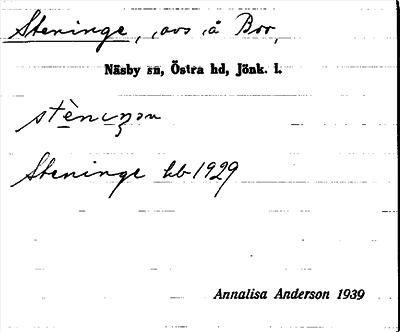 Steninge, avs å Bor,
Näsby sn, Östra hd, Jönk. l.
Steninge kb 1929
Annalisa Anderson 1939